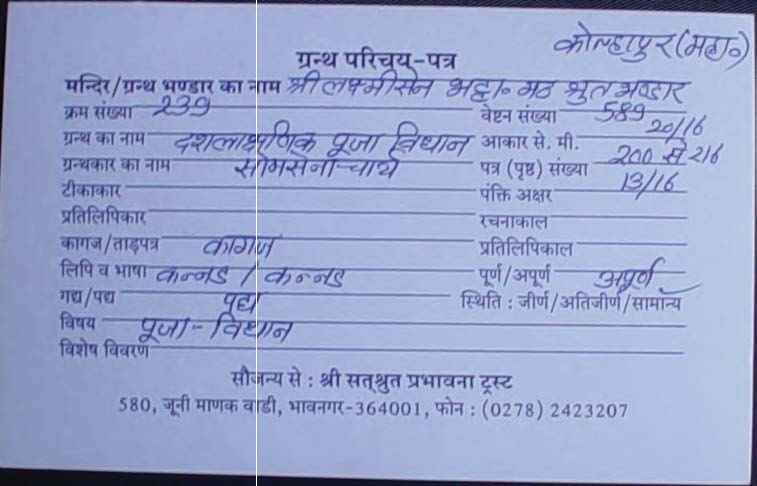 कोल्हापुर (महा॰)
ग्रन्थ परिचय-पत्र
मन्दिर/ग्रन्थ भण्डार का नाम श्री लक्ष्मीसेन भट्टा॰ मठ श्रुत भण्डार
क्रम संख्या 239 वेष्टन संख्या 589
ग्रन्थ का नाम दशलाक्षणिक पूजा विधान आकार से. मी. 20/16
ग्रन्थकार का नाम सोमसेनाचार्य पत्र (पृष्ठ) संख्या 200 से 216
टीकाकार पंक्ति अक्षर 13/16
प्रतिलिपिकार रचनाकाल
कागज/ताड़पत्र कागज प्रतिलिपिकाल
लिपि व भाषा कन्नड / कन्नड पूर्ण/अपूर्ण अपूर्ण
गद्य/पद्य पद्य स्थिति : जीर्ण/अतिजीर्ण/सामान्य
विषय पूजा-विधान
विशेष विवरण
सौजन्य से : श्री सत्श्रुत प्रभावना ट्रस्ट
580, जूनी माणक वाडी, भावनगर-364001, फोन : (0278) 2423207